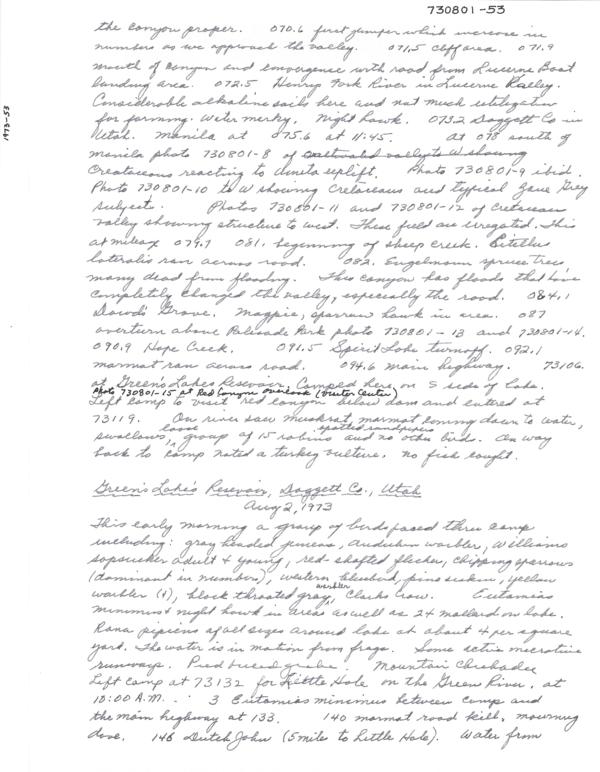 730801-53
the canyon proper. 070.6 first juniper which increase in
numbers as we approach the valley. 071.5 cliff area. 071.9
mouth of canyon and convergence with road from Lucerne Boat
landing area. 072.5 Henrys Fork River in Lucerne Valley.
Considerable alkaline soils here and not much utilization
for farming. Water merky. Night hawk. 073.2 Daggett Co in
Utah. Manila at 075.6 at 11:45. At 078 south of
manila photo 730801-8 of valley to W showing
Cretaceous reacting to uplift. Photo 730801-9 ibid.
Photo 730801-10 to W showing Cretaceous and typical Zane Grey
subjects. Photos 730801-11 and 730801-12 of Cretacean
valley showing structure to west. These field are irregated. This
at mileage 079.7 081. beginning of sheep creek. Citellus
lateralis ran across road. 082. Engelmann spruce trees,
many dead from flooding. This canyon has floods that have
completely changed the valley, especially the road. 084.1
Dowds Grove. Magpie, sparrow hawk in area. 087
overturn above Palisade Park photo 730801-13 and 730801-14.
090.9 Hope Creek. 091.5 Spirit Lake turnoff. 092.1
marmat ran across road. 094.6 main highway. 73106.
at Green's Lakes Resevoir. Camped here on S side of lake.
Photo 730801-15 at Red Canyon overlook (Visiter Center)
Left camp to visit red canyon below dam and entered at
73119. On river saw muskrat, marmat coming down to water,
swallows, loose group of 15 robins spotted sandpipers and no other birds. On way
back to camp noted a turkey vulture. no fish caught.
Green's Lakes Resevoir, Daggett Co., Utah
Aug 2, 1973
This early morning a group of birds passed thru camp
including: gray headed juncos, audubon warbler, Williams
sapsucker adult & young, red-shafted flicker, chipping sparrows
(dominant in number), western bluebird, pine siskin, yellow
warbler (1), black throated gray warbler, Clarks Crow. Eutamias
minimus & night hawk in area as well as 2+ mallard on lake.
Rana pipiens of all sizes around lake at about 4 per square
yard. The water is in motion from frogs. Some active microtine
runways. Pied billed grebe. Mountain Chickadee
Left camp at 73132 for Little Hole on the Green River, at
10:00 A.M. 3 Eutamias minimus between camp and
the main highway at 133. 140 marmat road kill, mourning
dove. 146 Dutch John (5 mile to Little Hole). Water from
1973-53